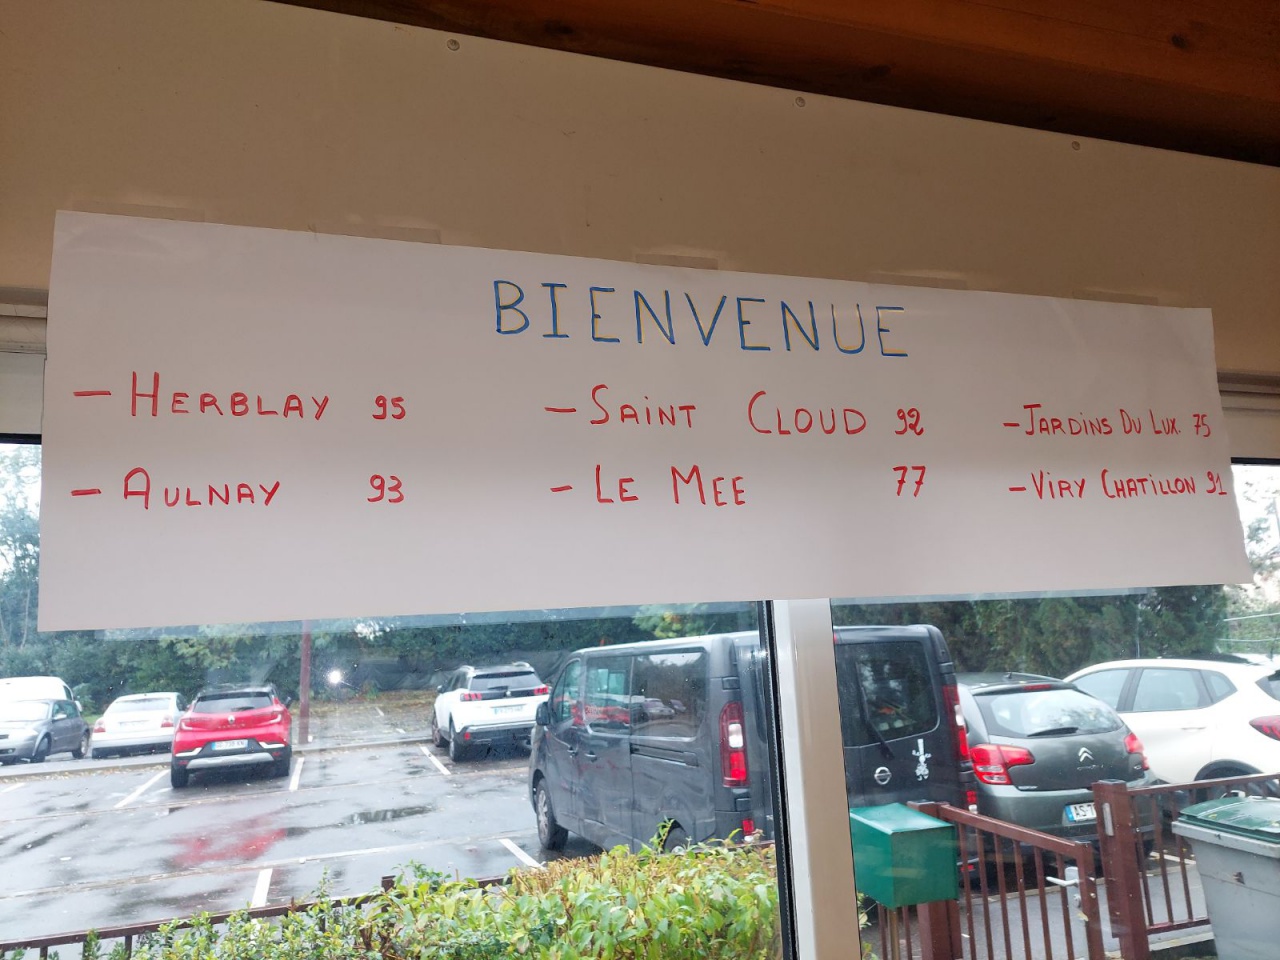 BIENVENUE
- HERBLAY 95
- SAINT CLOUD 92
- JARDINS DU LUX. 75
- AULNAY 93
- LE MEE 77
- VIRY CHATILLON 91